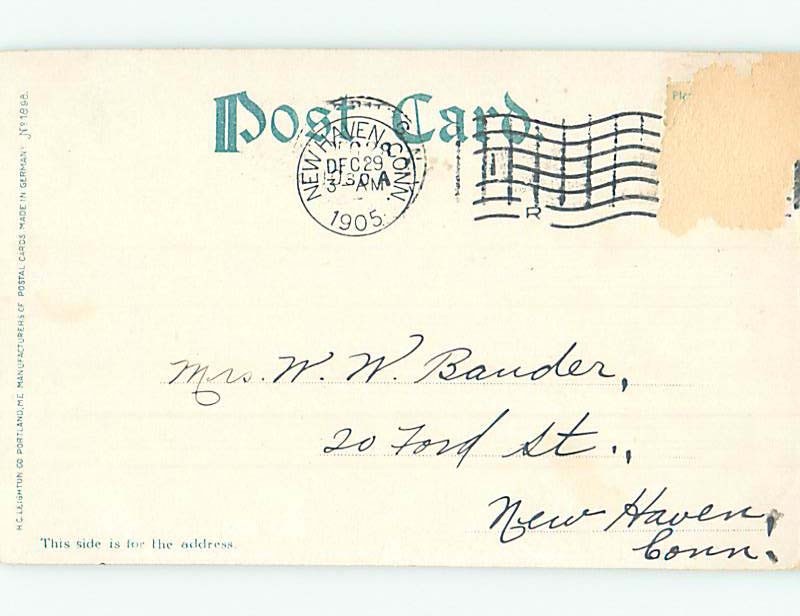 Post Card
NEW HAVEN, CONN.
DEC 29
3 AM
1905
R
Mrs. W. W. Bauder,
20 Ford St.,
New Haven,
Conn.
This side is for the address.
H.C. LEIGHTON CO PORTLAND, ME. MANUFACTURERS OF POSTAL CARDS MADE IN GERMANY No 1898.